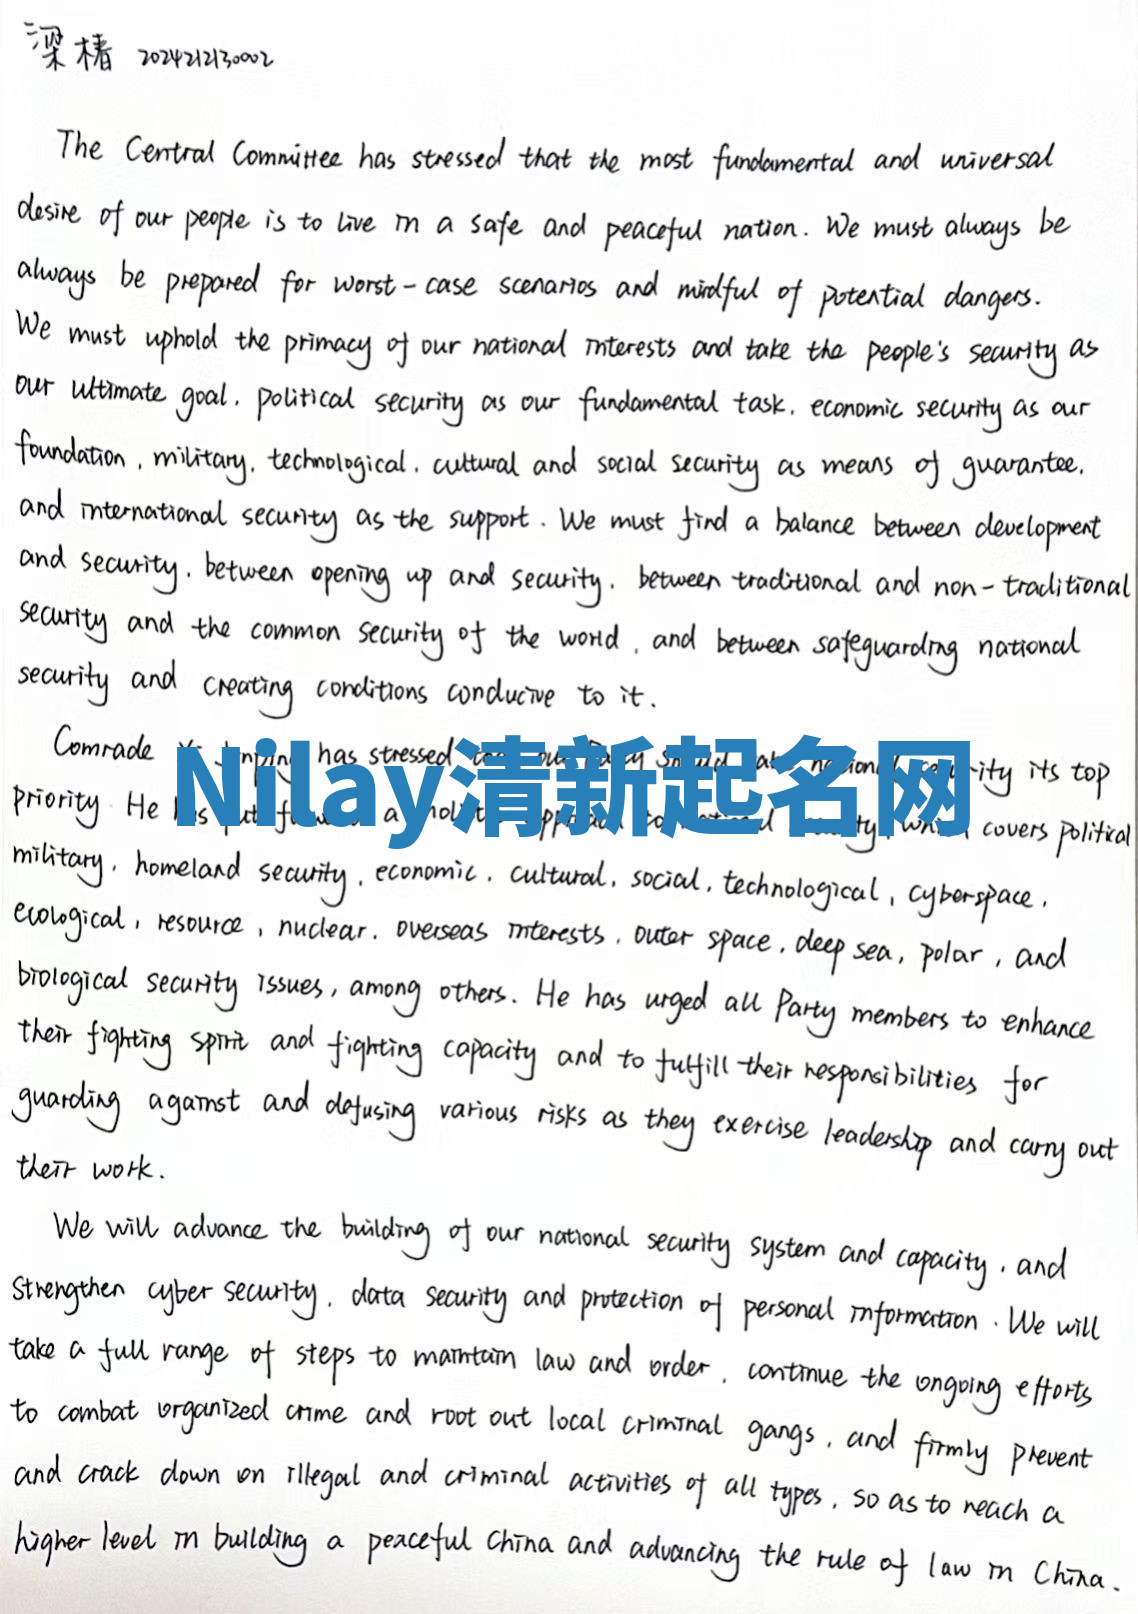 梁椿 2024212130002
The Central Committee has stressed that the most fundamental and universal
desire of our people is to live in a safe and peaceful nation. We must always be
always be prepared for worst-case scenarios and mindful of potential dangers.
We must uphold the primacy of our national interests and take the people's security as
our ultimate goal, political security as our fundamental task, economic security as our
foundation, military, technological, cultural and social security as means of guarantee,
and international security as the support. We must find a balance between development
and security, between opening up and security, between traditional and non-traditional
security and the common security of the world, and between safeguarding national
security and creating conditions conducive to it.
Comrade Jinping has stressed that our Party should national security its top
Nilay清新起名网
priority He has put a holistic approach to national security, which covers political
military, homeland security, economic, cultural, social, technological, cyberspace,
ecological, resource, nuclear, overseas interests, outer space, deep sea, polar, and
biological security issues, among others. He has urged all Party members to enhance
their fighting spirit and fighting capacity and to fulfill their responsibilities for
guarding against and defusing various risks as they exercise leadership and carry out
their work.
We will advance the building of our national security system and capacity, and
strengthen cyber security, data security and protection of personal information. We will
take a full range of steps to maintain law and order, continue the ongoing efforts
to combat organized crime and root out local criminal gangs, and firmly prevent
and crack down on illegal and criminal activities of all types, so as to reach a
higher level in building a peaceful China and advancing the rule of law in China.